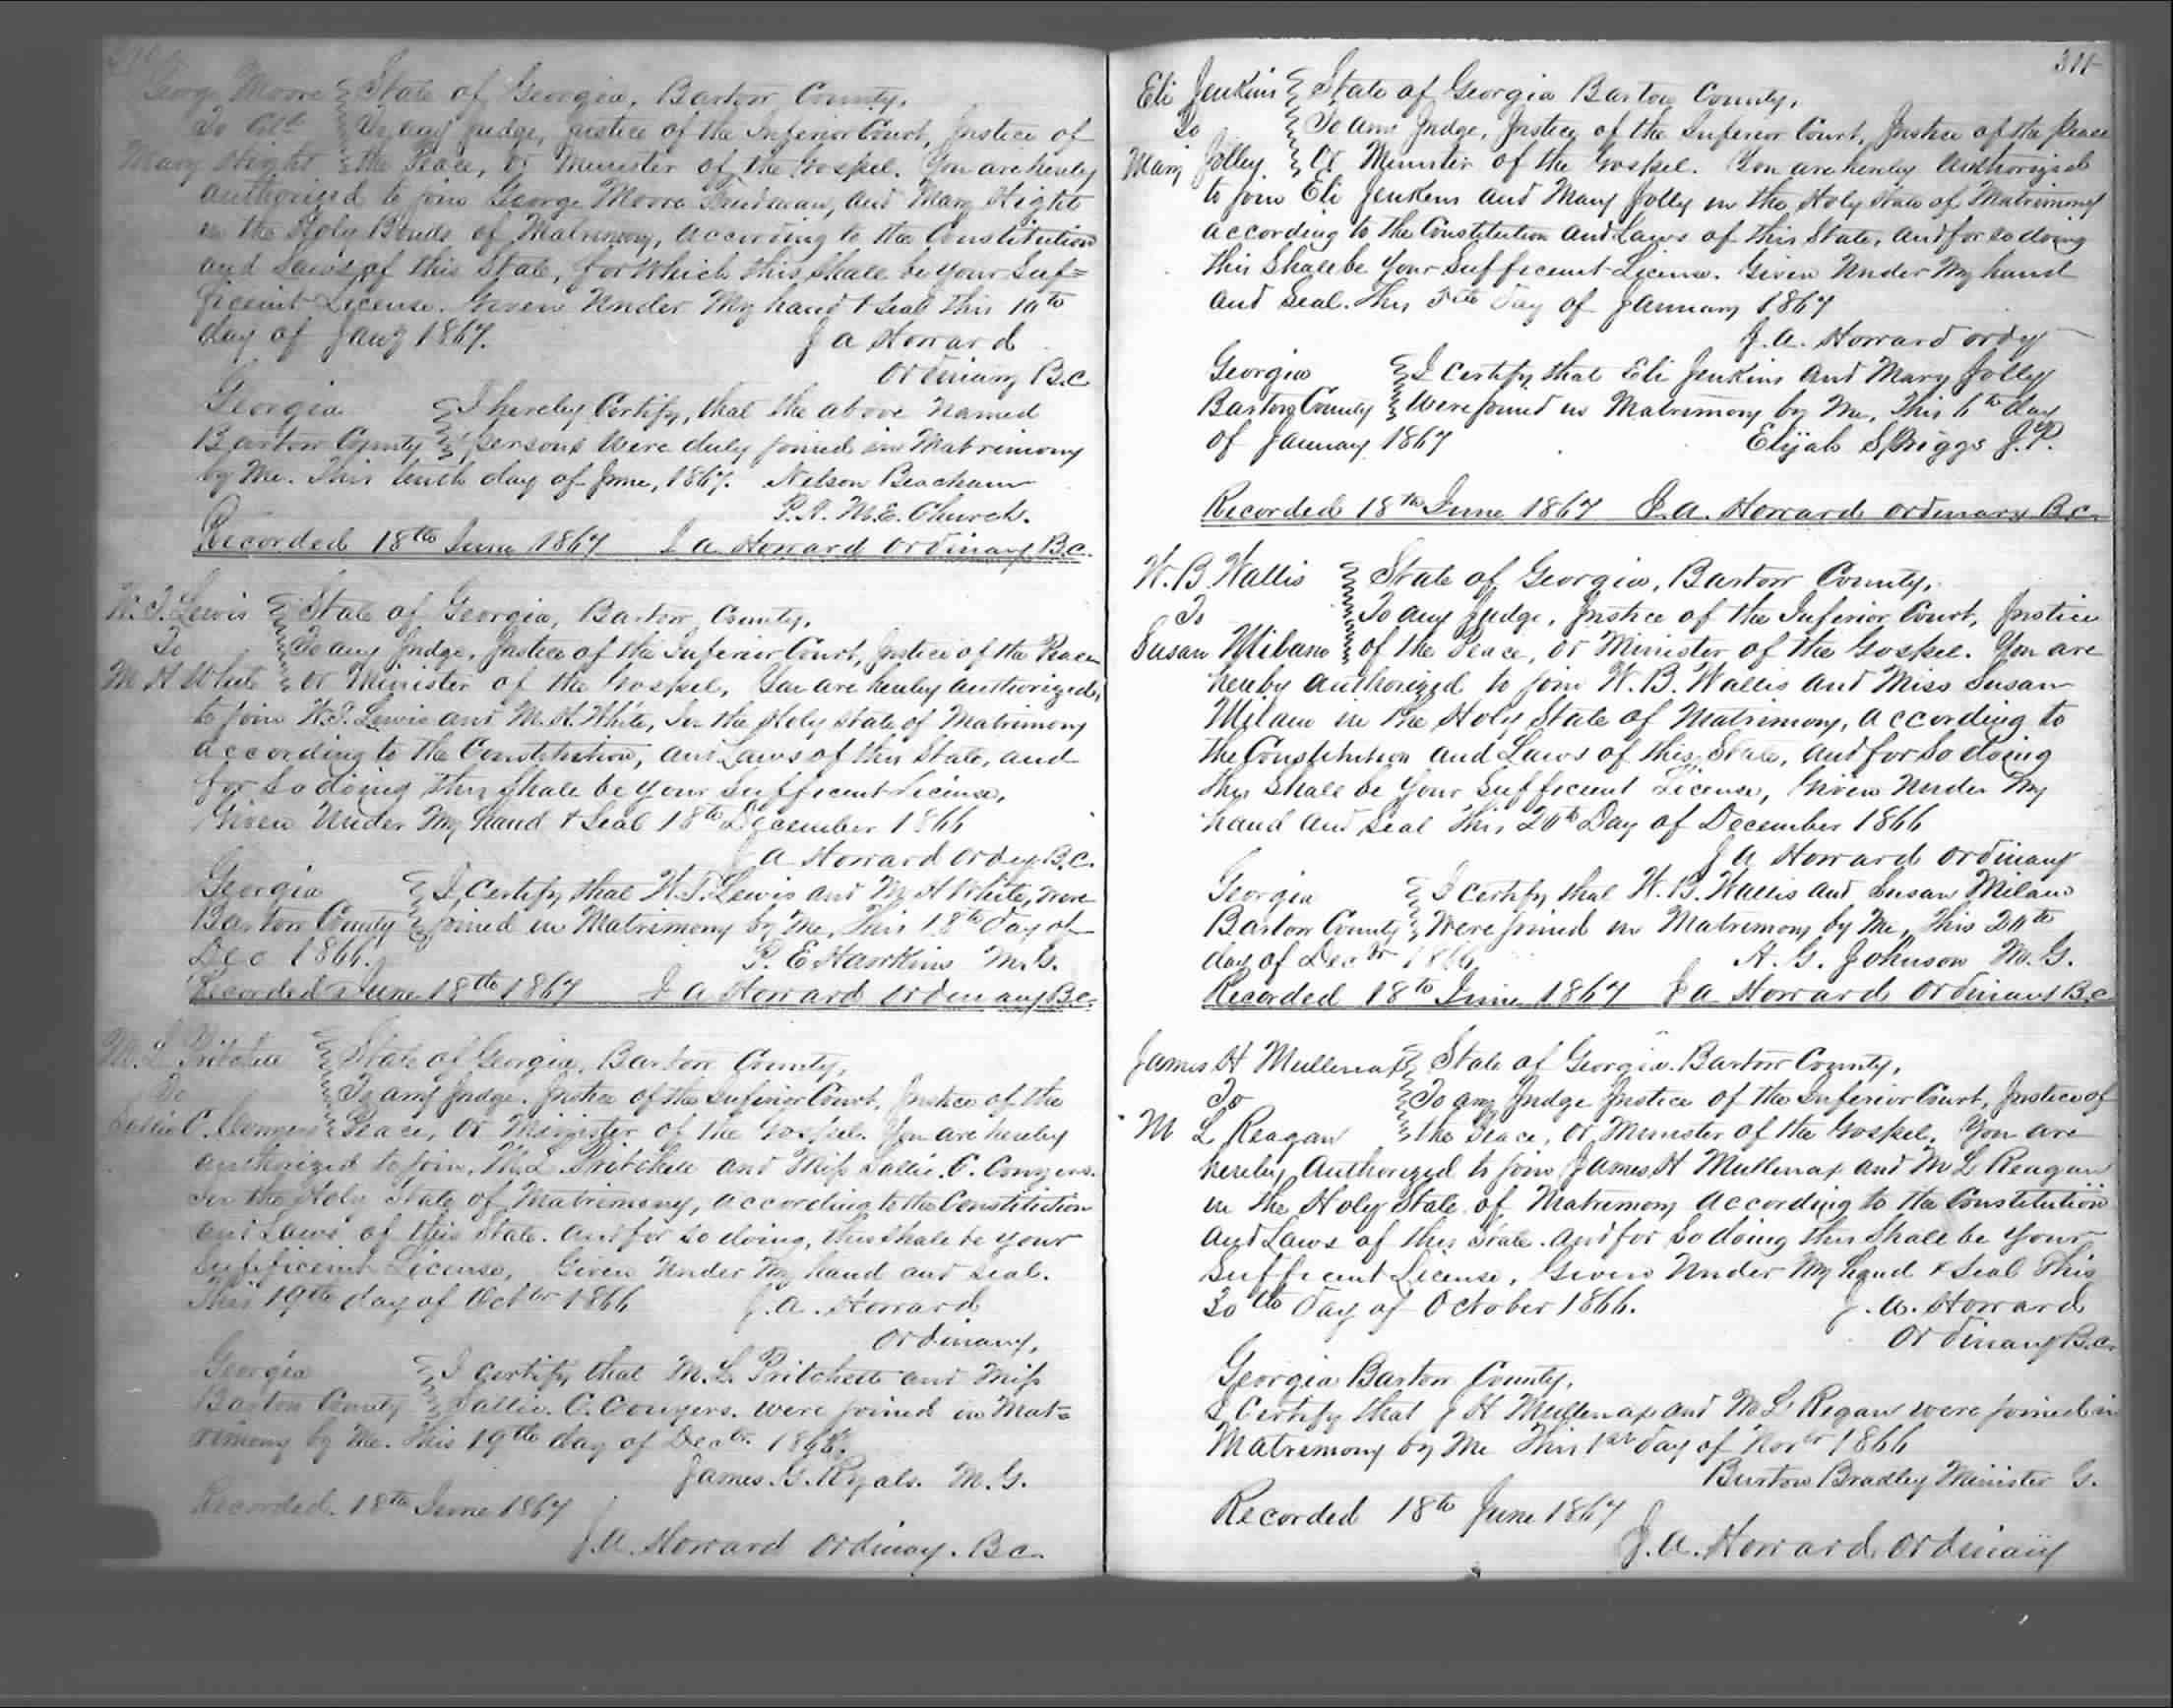 George Moore State of Georgia, Bartow County,
To Cold To any Judge, Justice of the Inferior Court, Justice of
Mary Hight the Peace, or Minister of the Gospel. You are hereby
authorized to join George Moore Freedman, and Mary Hight
in the Holy Bonds of Matrimony, according to the Constitution
and Laws of this State, for which this shall be your Suf=
ficient License. Given Under My hand & Seal this 10th
day of Jany 1867. J A Howard
Ordinary B.C
Georgia I hereby Certify, that the above Named
Bartow County persons were duly joined in Matrimony
by Me. This tenth day of June, 1867. Nelson Beacham
M.E. Church.
Recorded 18th June 1867 J A Howard Ordinary B.C.
W. T. Lewis State of Georgia, Bartow County,
To To any Judge, Justice of the Inferior Court, Justice of the Peace
M H White or Minister of the Gospel, You are hereby authorized,
to join W.T. Lewis and M. H. White, In the Holy state of Matrimony
according to the Constitution, and Laws of this State, and
for so doing this shall be your Sufficient License,
Given Under My hand & Seal 18th December 1866
J A Howard Ordy B.C.
Georgia I, Certify that W.T. Lewis and M H White, were
Bartow County joined in Matrimony by Me, This 18th day of
Dec 1866. P. E Hawkins M.G.
Recorded June 18th 1867 J A Howard Ordinary B.C.
M. L Pritchett State of Georgia, Bartow County,
To To any Judge, Justice of the Inferior Court, Justice of the
Sallie C. Conyers Peace, Or Minister of the Gospel. You are hereby
authorized to join, M.L. Pritchett and Miss Sallie. C. Conyers.
In the Holy State of Matrimony, according to the Constitution
and Laws of this State. and for so doing, this shall be your
Sufficient License, Given Under My hand and Seal.
This 19th day of Octbr 1866 J.A. Howard
Ordinary,
Georgia I certify that M.L. Pritchett and Miss
Bartow County Sallie. C. Conyers. were joined in Mat=
rimony by Me. This 19th day of Decbr. 1866.
James. G. Ryals. M.G.
Recorded. 18th June 1867
J.A. Howard Ordinay. B C.
311
Eli Jenkins State of Georgia Bartow County,
To To any Judge, Justice of the Inferior Court, Justice of the peace
Mary Jolley Or Minister of the Gospel. You are hereby Authorized
to join Eli Jenkins and Mary Jolly in the Holy State of Matrimony
according to the Constitution and Laws of this State, and for so doing
this Shall be Your Sufficient License. Given Under My hand
and Seal. This 5th Day of January 1867
J.A. Howard Ordy
Georgia I Certify that Eli Jenkins and Mary Jolley
Bartow County Were joined in Matrimony by Me, This 6th day
of January 1867 Elijah Spriggs J.P.
Recorded 18th June 1867 J.A. Howard Ordinary B.C.
W.B. Wallis State of Georgia, Bartow County,
To To any Judge, Justice of the Inferior Court, Justice
Susan Milam of the Peace, or Minister of the Gospel. You are
hereby authorized to join W.B. Wallis and Miss Susan
Milam in the Holy State of Matrimony, according to
the Constitution and Laws of this State, and for so doing
this Shall be Your Sufficient License, Given Under My
hand and seal This 20th Day of December 1866
J A Howard Ordinary
Georgia I certify that W. B. Wallis and Susan Milam
Bartow County Were joined in Matrimony by Me, This 20th
day of Decbr 1866 A. G. Johnson M.G.
Recorded 18th June 1867 J A Howard Ordinary B.C
James H Mullenax State of Georgia. Bartow County,
To To any Judge Justice of the Inferior Court, Justice of
M L Reagan the Peace, or Minister of the Gospel. You are
hereby Authorized to join James H Mullenax and M L Reagan
in the Holy State of Matrimony According to the Constitution
and Laws of this State. And for So doing this Shall be Your
Sufficient License, Given Under My hand & Seal This
30th Day of October 1866. J.A. Howard
Ordinary B.C.
Georgia Bartow County,
I Certify that J H Mullenax and M L Regan were joined in
Matrimony by Me This 1st day of Novbr 1866
Burton Bradley Minister G.
Recorded 18th June 1867
J.A. Howard Ordinary